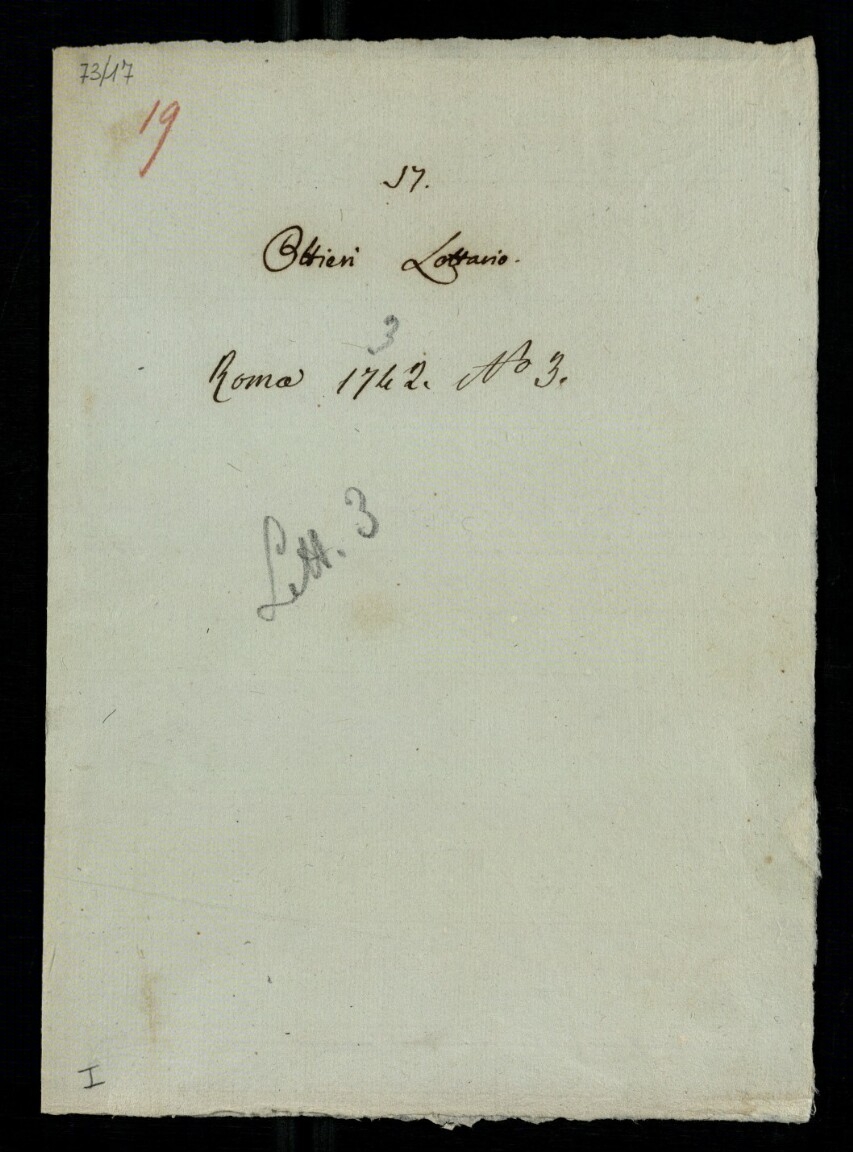 73/17
19
17.
Ottieri Lottario.
3
Roma 1742. No 3.
Lett. 3
I